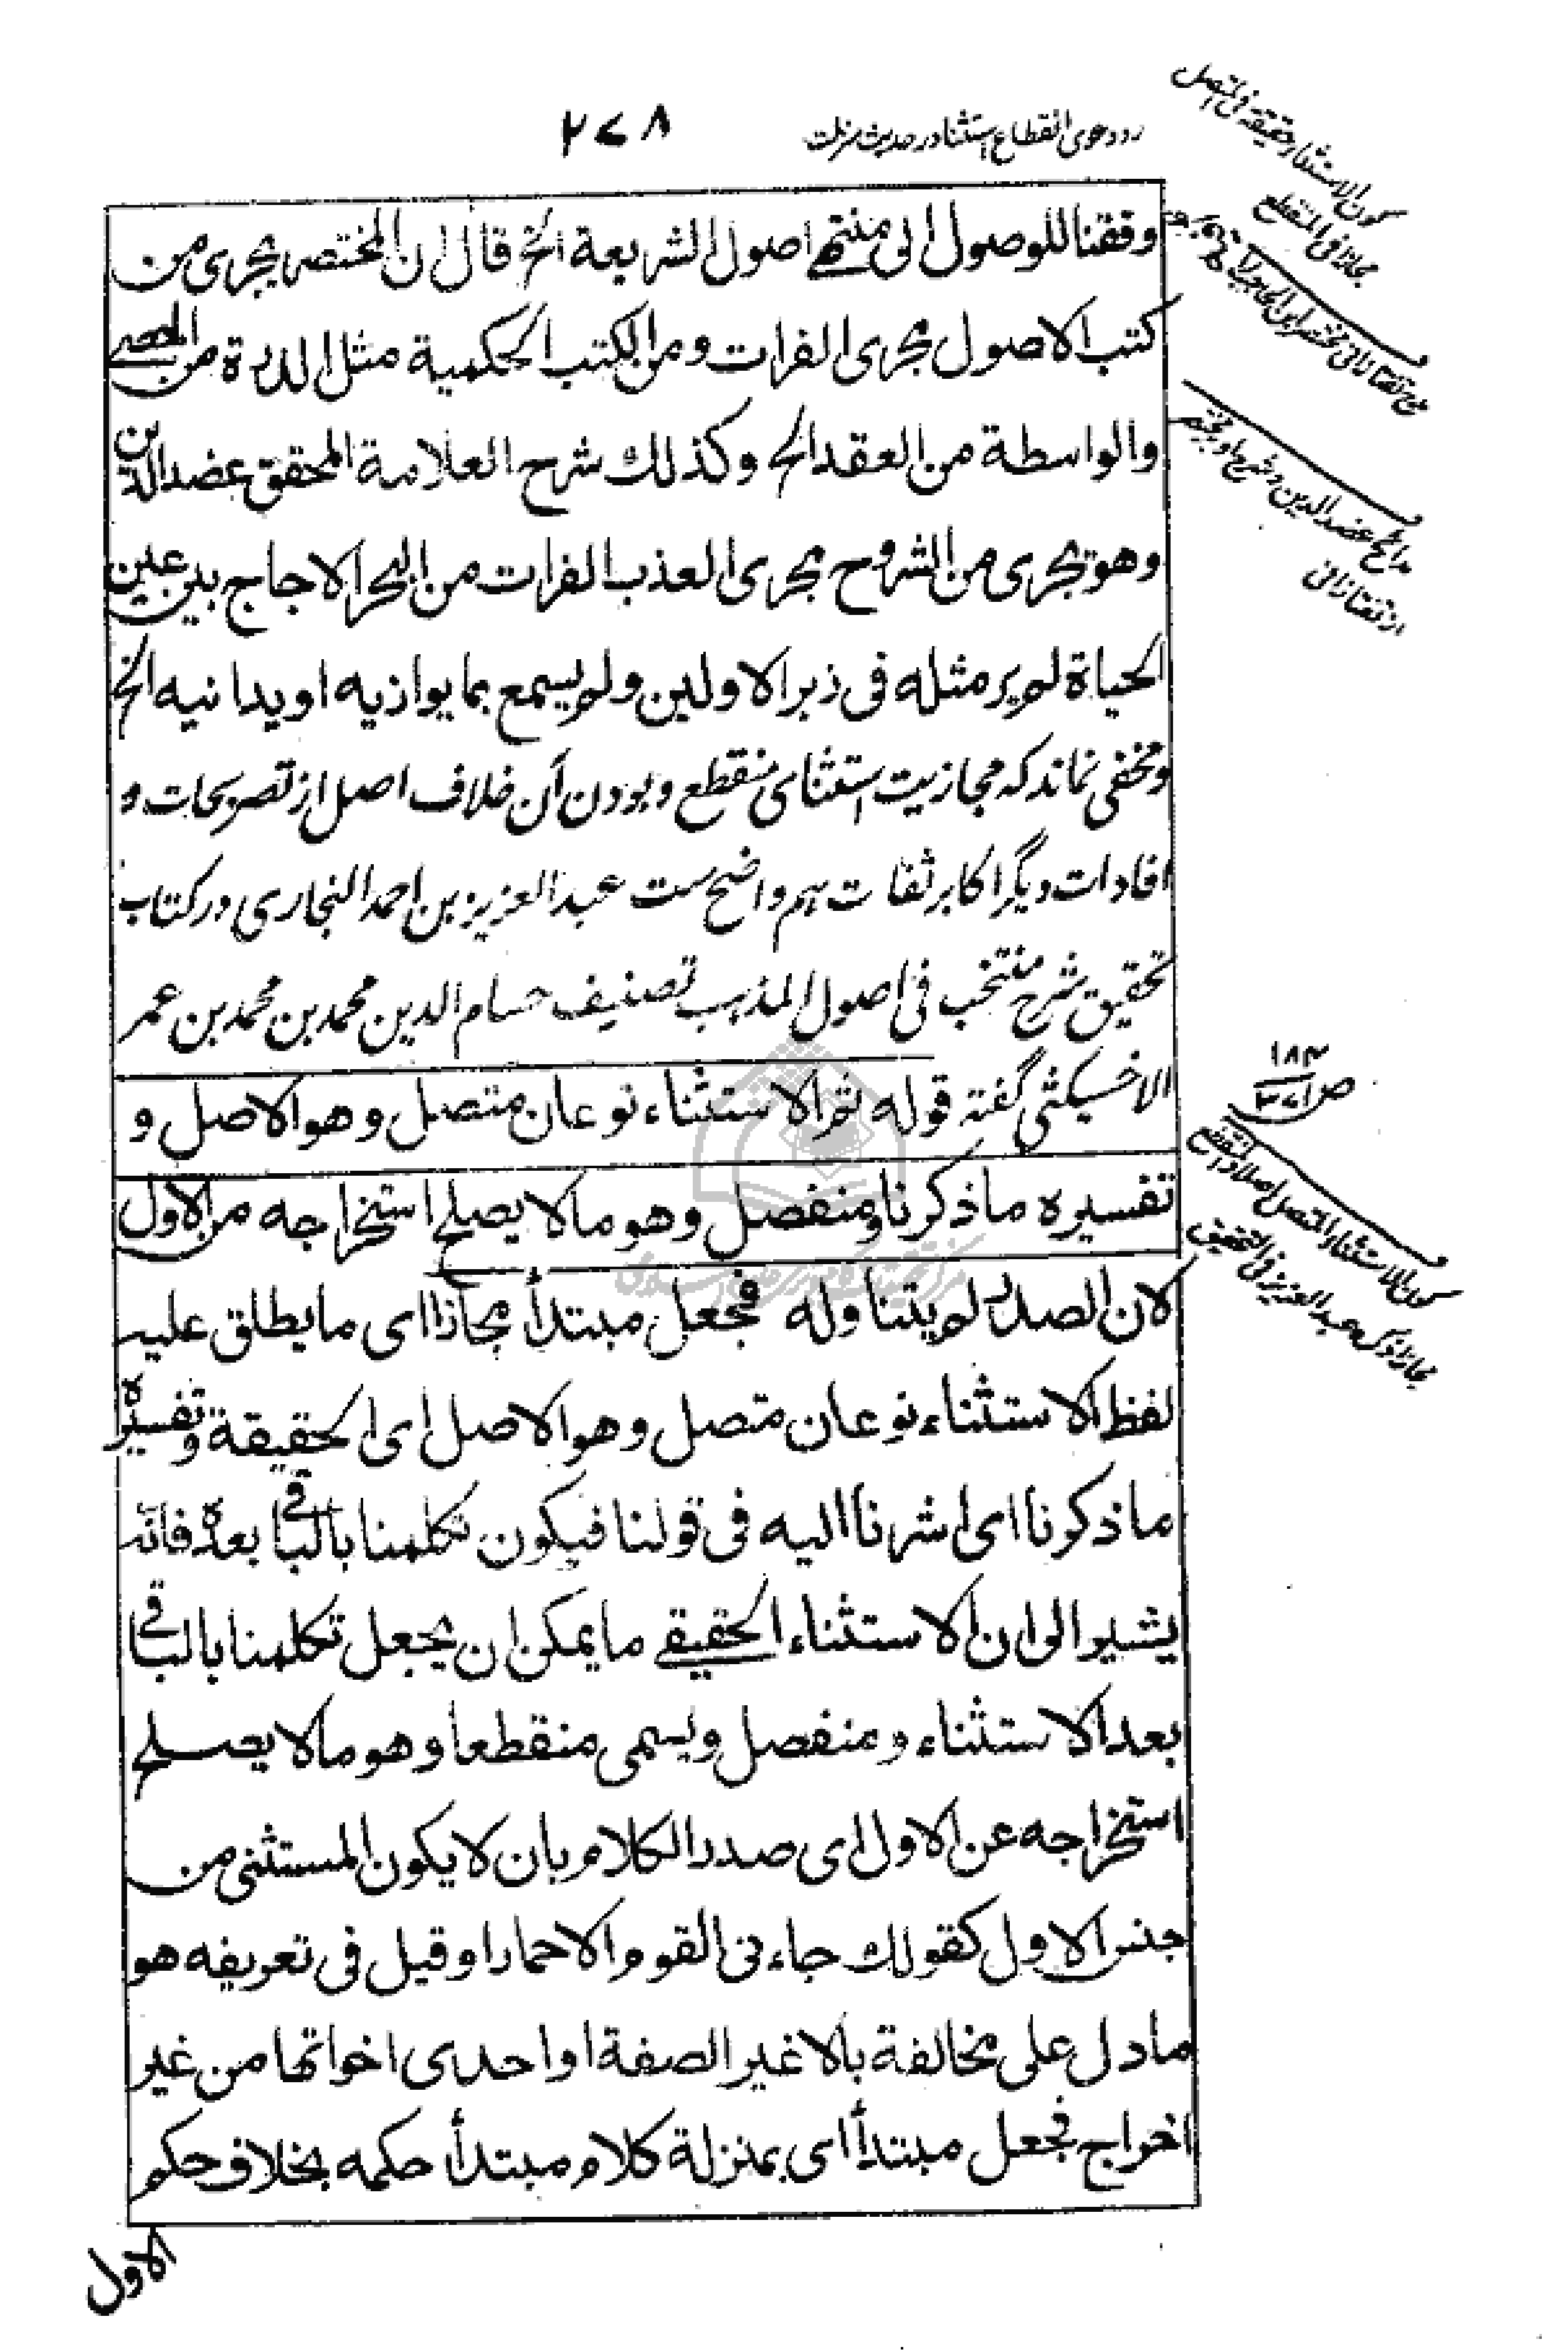 رد دعوی انقطاع استثنا در حدیث منزلت
۲۷۸
کون الاستثناء حقیقة فی المتصل
مجازا فی المنقطع
مدائح عضد الدین و شرح او بر مختصر
از تفتازانی
وفقنا للوصول الی منتهی اصول الشریعة الخ قال ان المختصر یجری من
کتب الاصول مجری الفرات ومن الکتب الحکمیة مثل الدرة من الحصی
والواسطة من العقد الخ وکذلك شرح العلامة المحقق عضد الدین
وهو یجری من الشروح مجری العذب الفرات من البحر الاجاج بین عین
الحیاة لم یر مثله فی زبر الاولین ولم یسمع بما یوازیه او یدانیه الخ
و مخفی نماند که مجازیت استثنای منقطع و بودن آن خلاف اصل از تصریحات و
افادات دیگر اکابر ثقات هم واضح ست عبد العزیز بن احمد النجاری در کتاب
تحقیق شرح منتخب فی اصول المذهب تصنیف حسام الدین محمد بن محمد بن عمر
الاخسیکثی گفته قوله ثم الاستثناء نوعان متصل وهو الاصل و
تفسیره ما ذکرنا ومنفصل وهو ما لا یصلح استخراجه من الاول
لان الصدر لم یتناوله فجعل مبتدأ مجازا ای ما یطلق علیه
لفظ الاستثناء نوعان متصل وهو الاصل ای الحقیقة وتفسیره
ما ذکرنا ای اشرنا الیه فی قولنا فیکون تکلمنا بالباقی بعده فانه
یشیر الی ان الاستثناء الحقیقی ما یمکن ان یجعل تکلمنا بالباقی
بعد الاستثناء ومنفصل ویسمی منقطعا وهو ما لا یصلح
استخراجه عن الاول ای صدر الکلام بان لا یکون المستثنی من
جنس الاول کقولك جاءنی القوم الا حمارا وقیل فی تعریفه هو
ما دل علی مخالفة بالا غیر الصفة او احدی اخواتها من غیر
اخراج فجعل مبتدأ ای بمنزلة کلام مبتدأ حکمه بخلاف حکم
۱۸۳
کون الاستثناء المتصل اصلا والمنقطع
مجازا ذکره عبد العزیز فی التحقیق
الاول